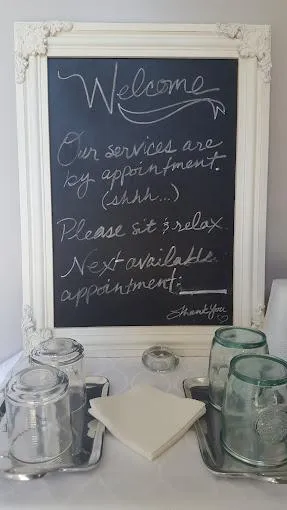 Welcome
Our services are
by appointment.
(shhh...)
Please sit & relax.
Next available
appointment: ____
Thank You